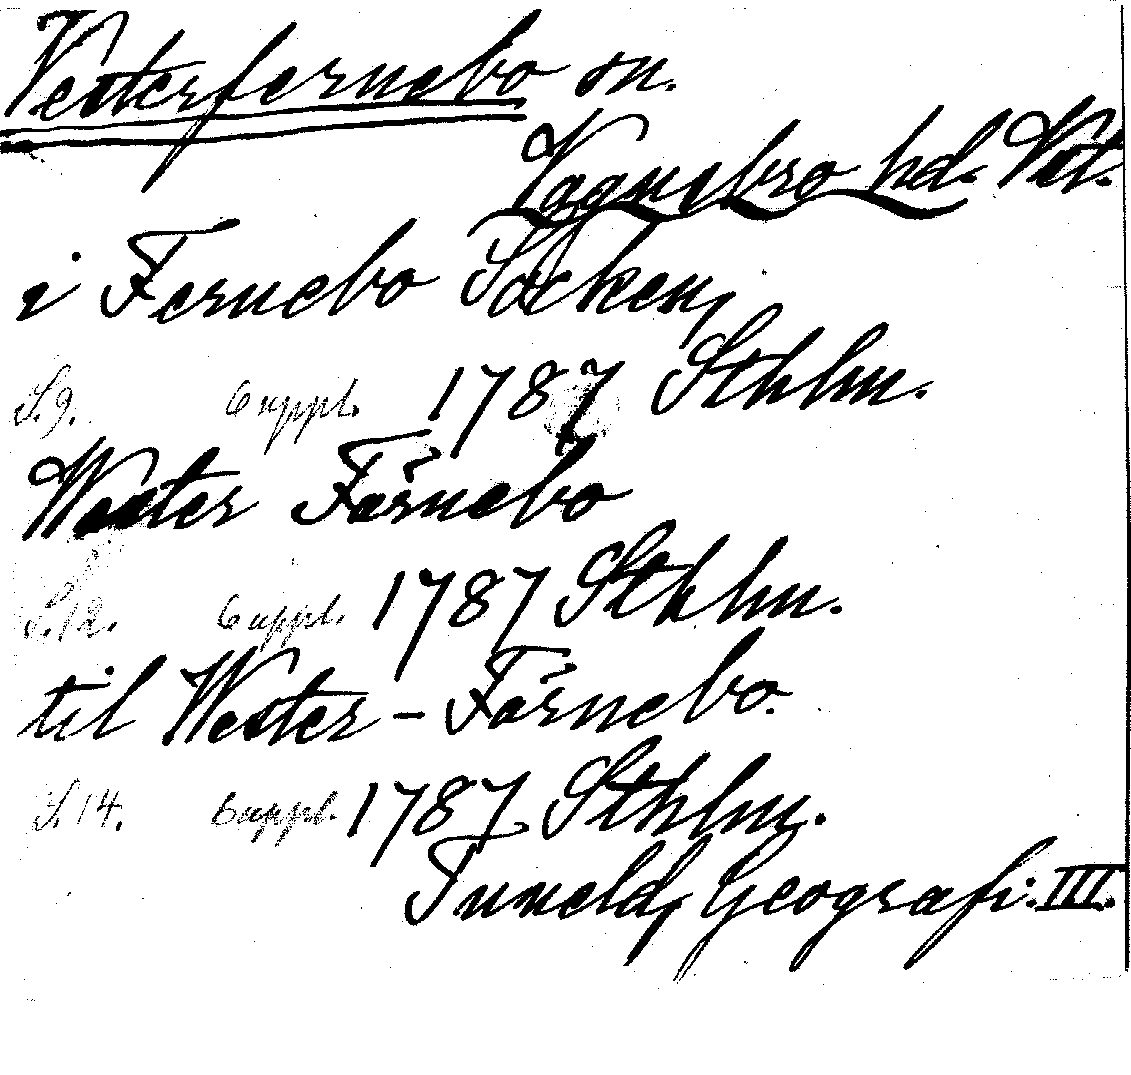 Vesterfernebo sn.
Vagnsbro hd. Vstm.
i Fernebo Socken,
S.9. Suppl. 1787 Sthlm.
Wester Färnebo
S.12. Suppl. 1787 Sthlm.
til Wester-Färnebo.
S.14. Suppl. 1787. Sthlm.
Tuneld, Geografi. III.